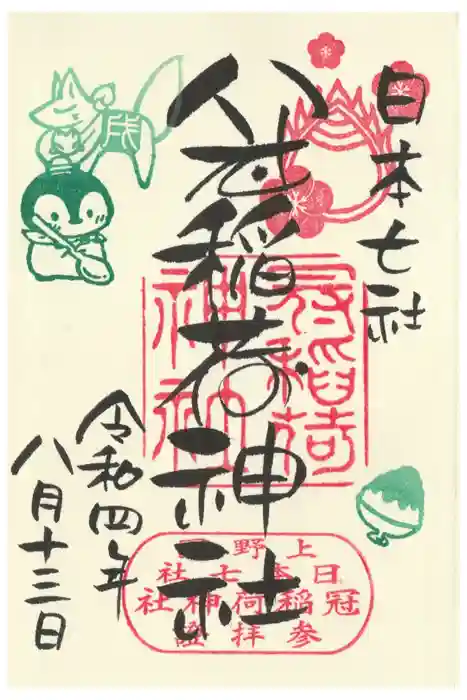 日本七社
冠稲荷神社
令和四年
八月十三日
冠稲荷
神社
上野国
日本七社
冠稲荷神社
参拝證